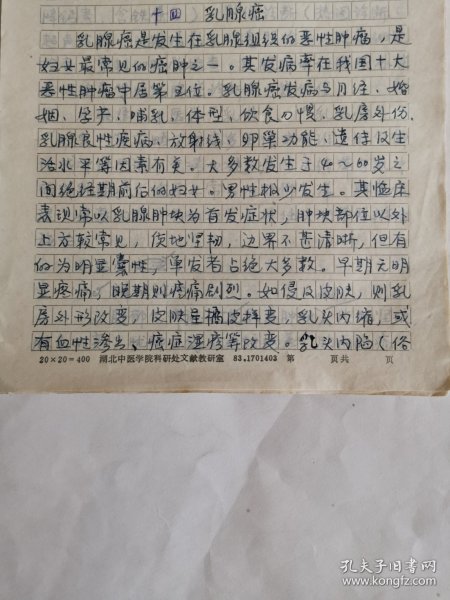 十四 乳腺癌
乳腺癌是发生在乳腺组织的恶性肿瘤，是
妇女最常见的癌肿之一。其发病率在我国十大
恶性肿瘤中居第五位。乳腺癌发病与月经、婚
姻、孕产、哺乳、体型、饮食习惯、乳房外伤、
乳腺良性疾病、放射线、卵巢功能、遗传及生
活水平等因素有关。大多数发生于40～60岁之
间绝经期前后的妇女。男性极少发生。其临床
表现常以乳腺肿块为首发症状，肿块部位以外
上方较常见，质地坚韧，边界不甚清晰，但有
的为明显囊性，单发者占绝大多数。早期无明
显疼痛，晚期则疼痛剧烈。如侵及皮肤，则乳
房外形改变，皮肤呈橘皮样变，乳头内缩，或
有血性渗出、癌症湿疹等改变。乳头内陷（俗
20×20=400 湖北中医学院科研处文献教研室 83.1701403 第 页共 页
孔夫子旧书网
www.kongfz.com